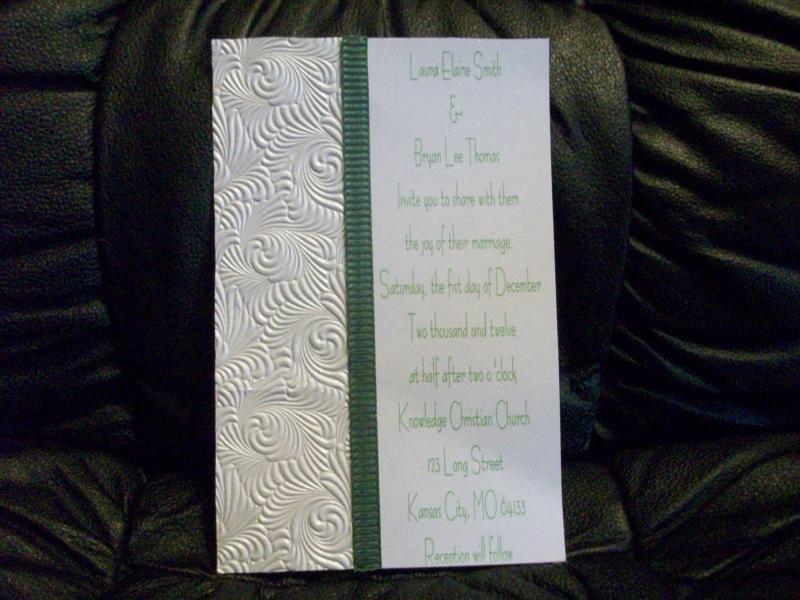 Laura Elaine Smith
&
Bryan Lee Thomas
Invite you to share with them
the joy of their marriage.
Saturday, the fist day of December
Two thousand and twelve
at half after two o'clock
Knowledge Christian Church
123 Long Street
Kansas City, MO 64133
Reception will follow